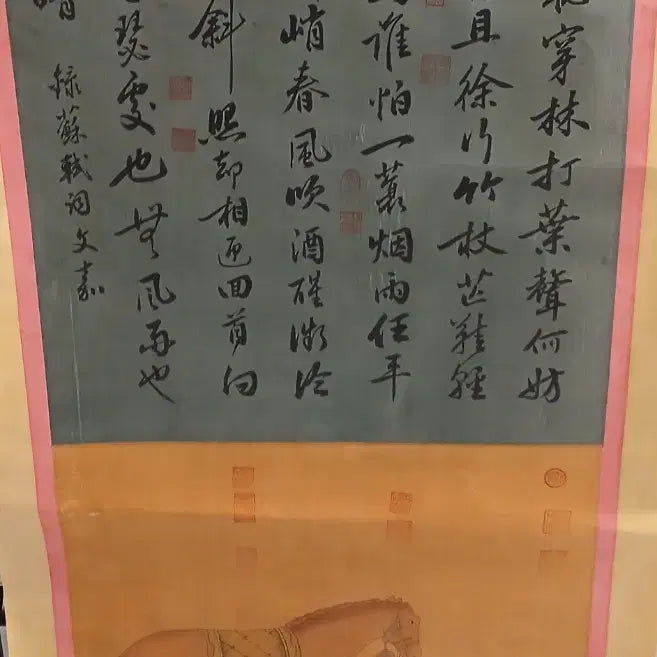 穿林打葉聲何妨
且徐行竹杖芒鞋輕
誰怕一蓑烟雨任平
峭春風吹酒醒微冷
斜照却相迎回首向
瑟處也無風雨也
晴
錄蘇軾詞文嘉